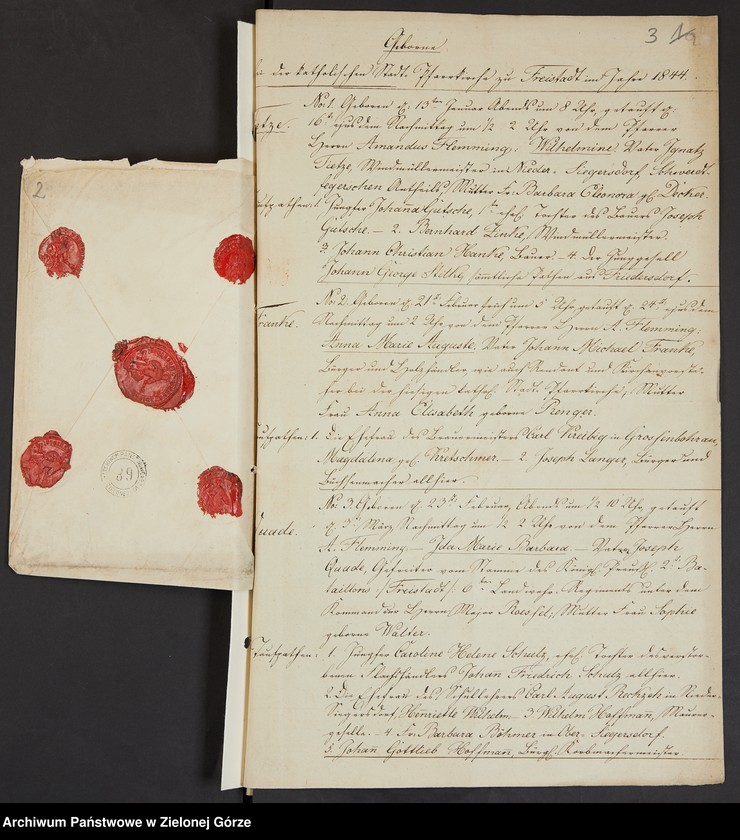 3 1a
2
Geborne
in der katholischen Stadt-Pfarrkirche zu Freistadt im Jahre 1844.
Tietze.
No: 1. Geboren d. 15ten Januar Abends um 8 Uhr, getauft d.
16t ejusdem Nachmittag um ½ 2 Uhr von dem Pfarrer
Herrn Amandus Flemming: Wilhelmine Vater Ignatz
Tietze, Windmüllermeister in Nieder-Siegersdorf,
Antheils, Mutter Fr: Barbara Eleonora geb. Decker.
Taufpathen: 1. Jungfer Johanna Gutsche, ehel. Tochter des Bauers Joseph
Gutsche. – 2. Bernhard Zinke, Windmüllermeister.
3. Johann Christian Hanke, Bauer. – 4. der Junggesell
Johann George Hilke, sämtliche Pathen aus Friedersdorf.
Franke.
No: 2. Geboren d. 21t Februar früh um 5 Uhr, getauft d. 24t ejusdem
Nachmittag um 2 Uhr von dem Pfarrer Herrn A. Flemming:
Anna Marie Auguste. Vater Johann Michael Franke,
Bürger und Holzhändler wie auch Rendant und Kirchenvorste-
her bei der hiesigen kathol. Stadt-Pfarrkirche; Mutter
Frau Anna Elisabeth geborne Prenger.
Taufpathen: 1. die Ehefrau des Brauermeisters Carl Kreibig in Grossenbohrau,
Magdalena geb. Kretschmer. – 2. Joseph Langer, Bürger und
Büchsenmacher allhier.
Quade.
No: 3. Geboren d. 23t Februar, Abends um ½ 10 Uhr, getauft
d. 3t März Nachmittag um ½ 2 Uhr von dem Pfarrer Herrn
A. Flemming – Ida Marie Barbara. – Vater Joseph
Quade, Gefreiter vom Stamme des Königl. Preuß. 2t Ba-
taillons /:Freistadt:/ 6ten Landwehr-Regiments unter dem
Kommandeur Herrn Major Roeshel; Mutter Frau Sophie
geborne Walter.
Taufpathen: 1. Jungfer Caroline Helene Schulz, ehel. Tochter des verstor-
benen Johann Friedrich Schulz allhier.
2. Die Ehefrau des Schullehrers Carl August Rochzeh in Nieder-
Siegersdorf, Henriette Wilhelm. – 3. Wilhelm Hoffmann, Maurer-
geselle. – 4. Fr. Barbara Böhmer in Ober-Siegersdorf.
5. Johann Gottlieb Hoffmann, Bürgl. Korbmachermeister.
89
Archiwum Państwowe w Zielonej Górze